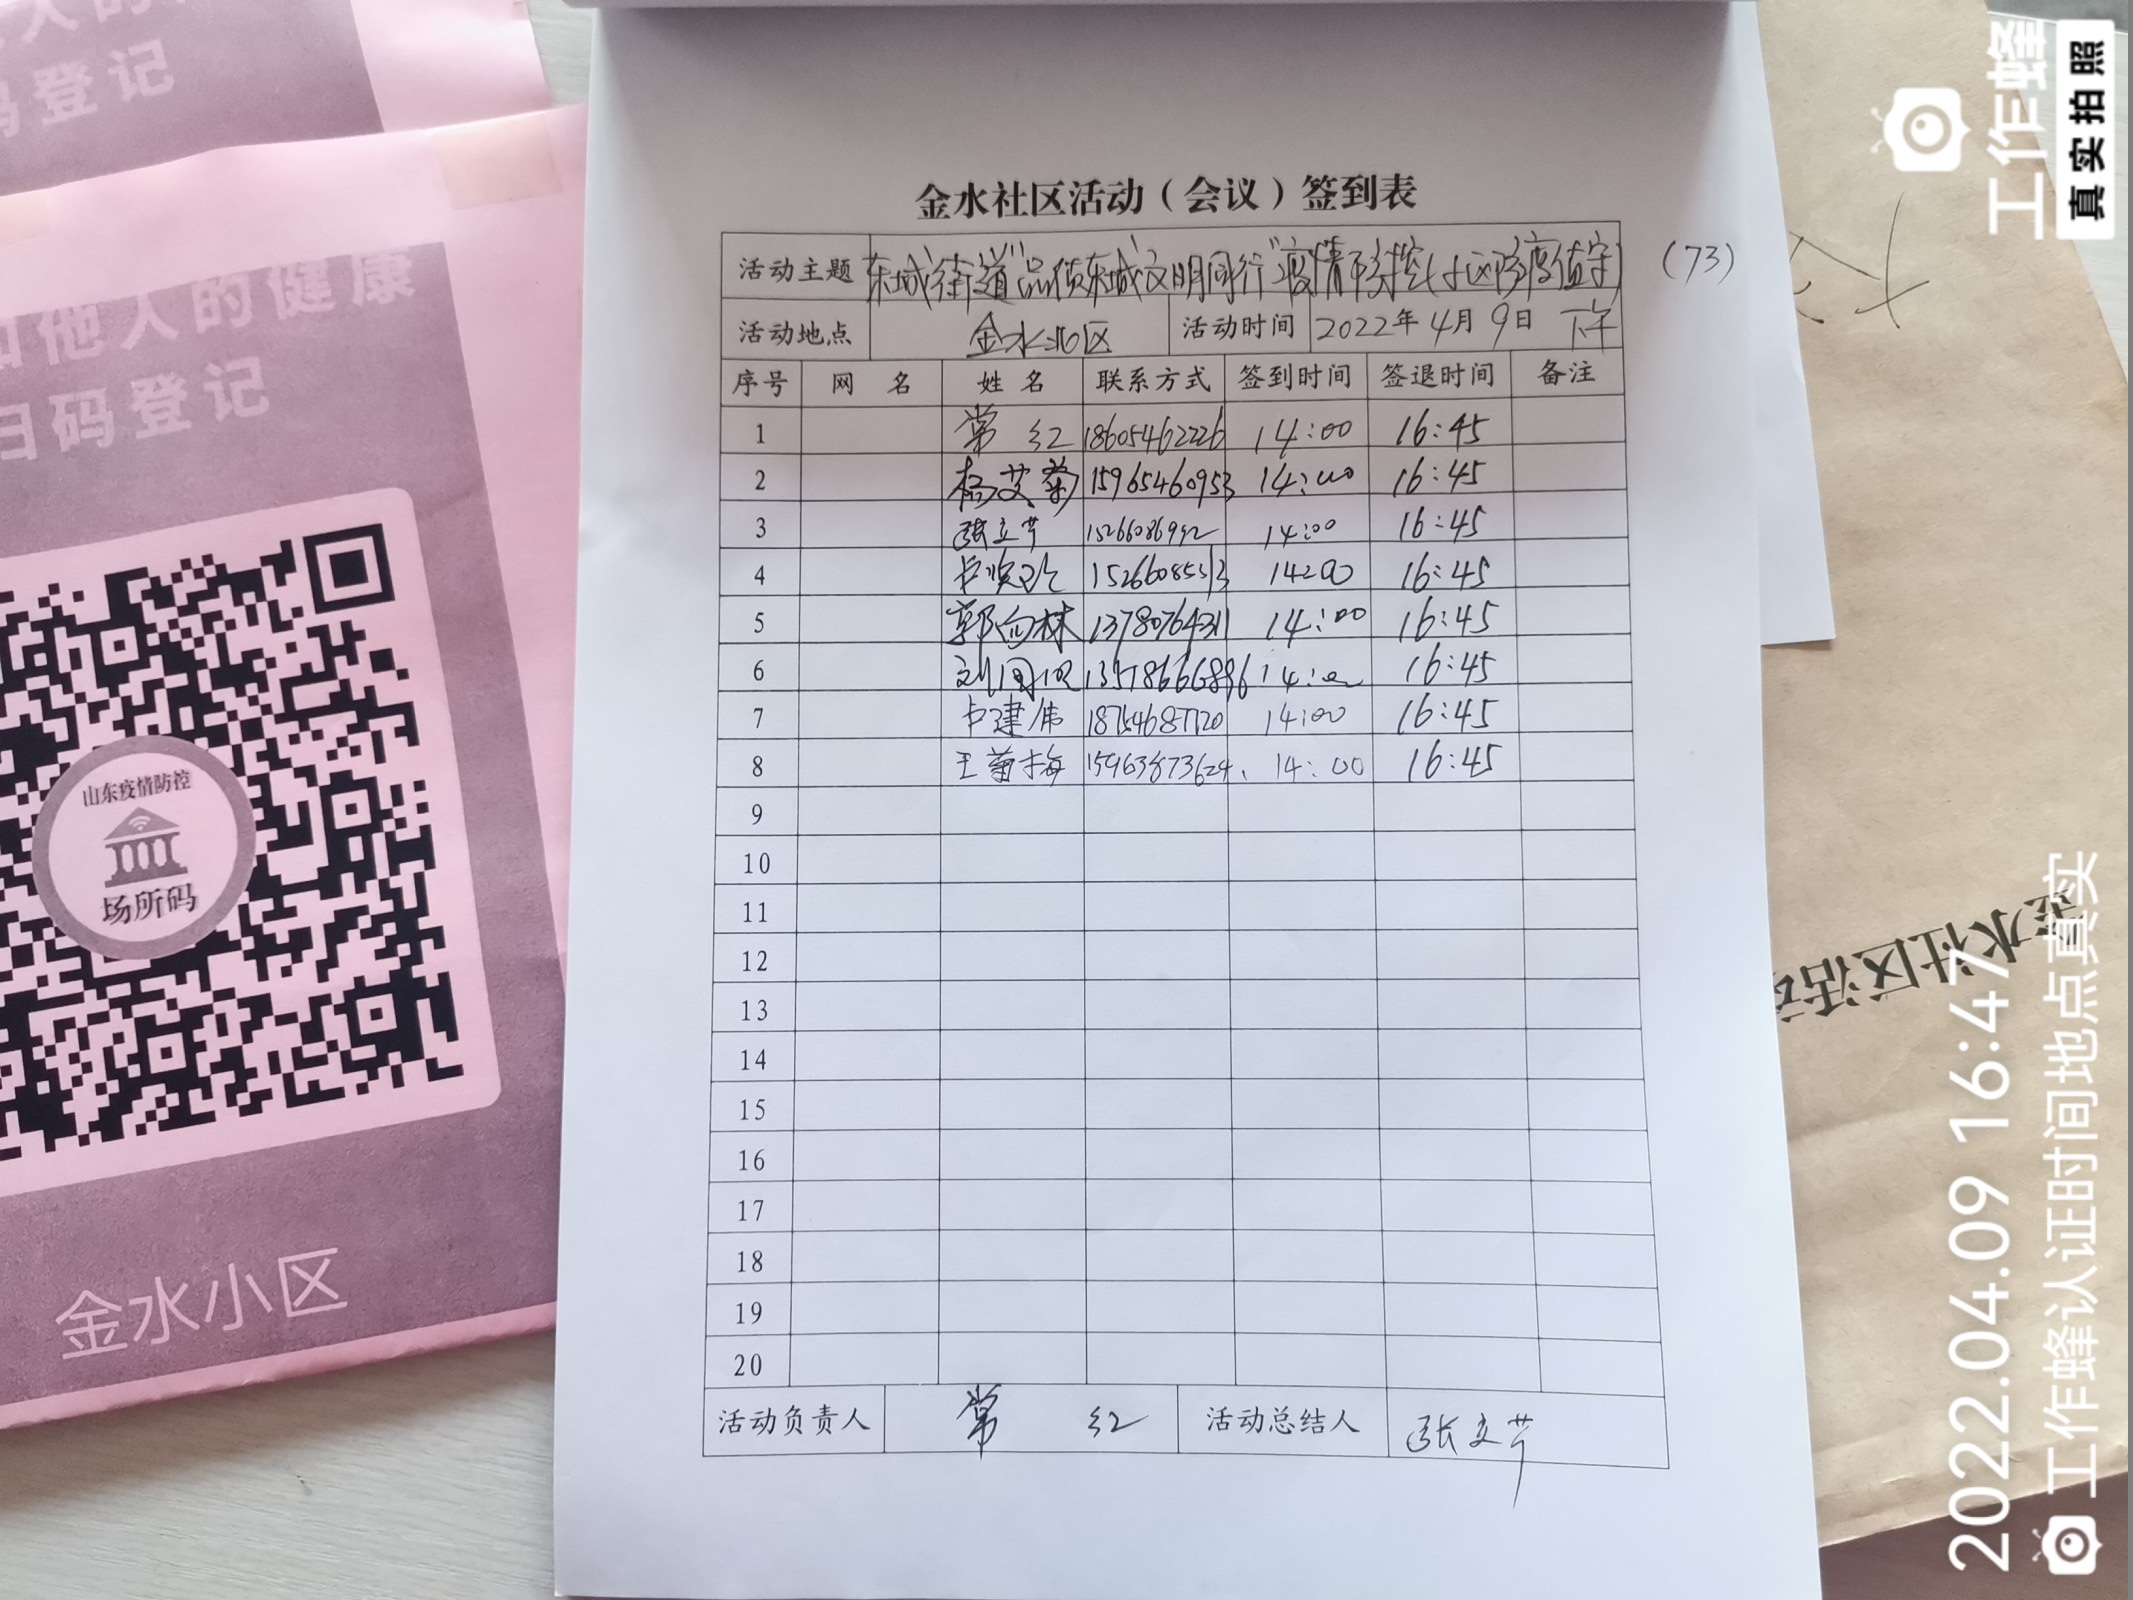 人的
码登记
和他人的健康
扫码登记
山东疫情防控
场所码
金水小区
金水社区活动（会议）签到表
活动主题 东城街道“品质东城文明同行”疫情防控(小区防疫值守) (73)
活动地点 金水北区 活动时间 2022年4月9日 下午
序号 网名 姓名 联系方式 签到时间 签退时间 备注
1 常红 18605462226 14:00 16:45
2 杨艾菊 15965460953 14:00 16:45
3 张立芹 15266086992 14:00 16:45
4 15266085313 14:00 16:45
5 郭向林 13780764311 14:00 16:45
6 14:00 16:45
7 卢建伟 18754687120 14:00 16:45
8 王菊梅 15963873624. 14:00 16:45
9
10
11
12
13
14
15
16
17
18
19
20
活动负责人 常红 活动总结人 张立芹
金水社区活动
工作蜂
真实拍照
2022.04.09 16:47
工作蜂认证时间地点真实